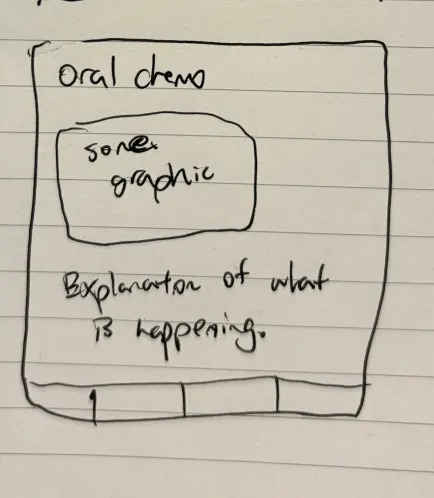 oral chemo
some
graphic
Explanation of what
is happening.